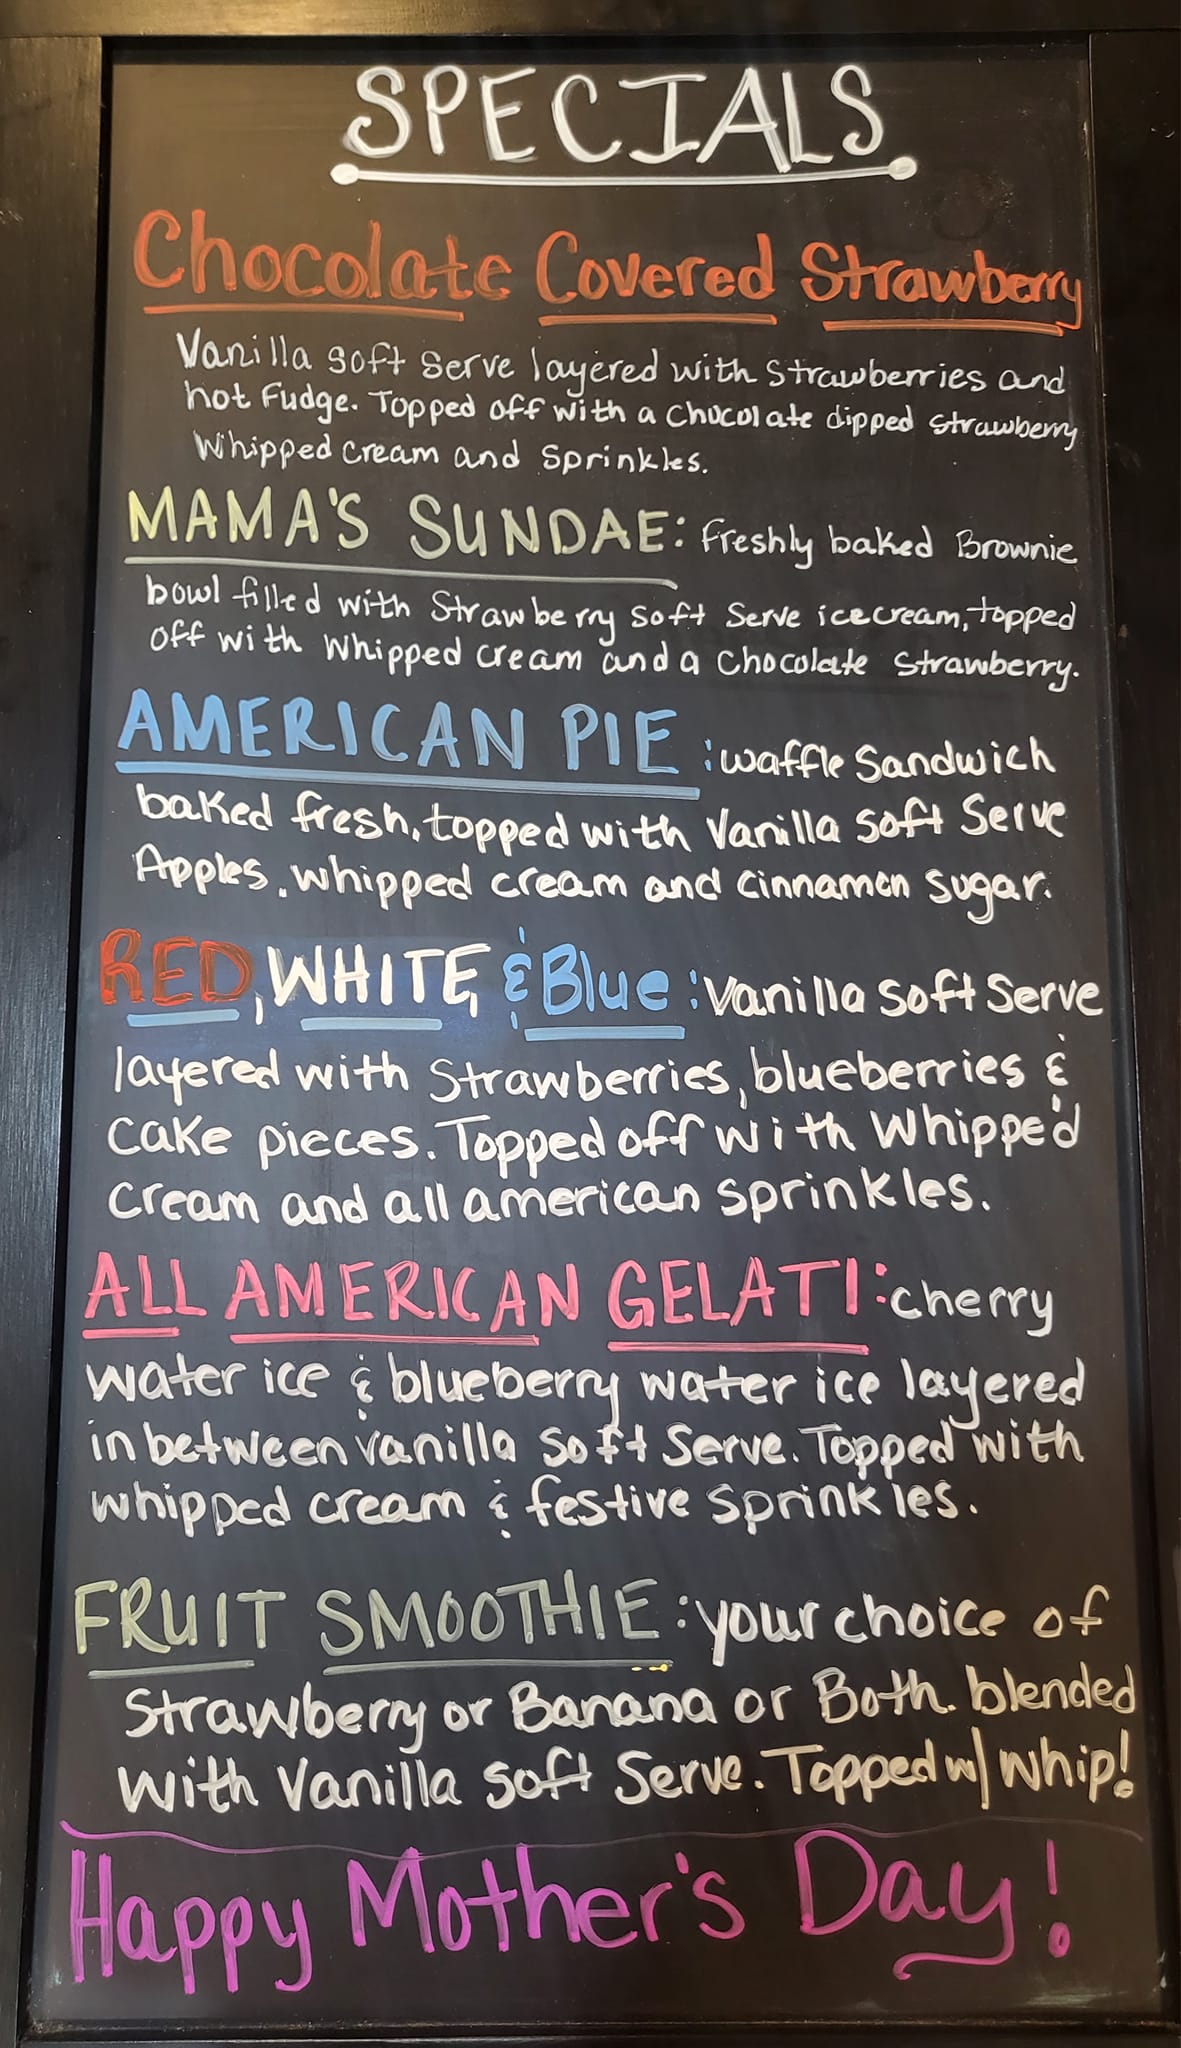 SPECIALS
Chocolate Covered Strawberry
Vanilla soft serve layered with strawberries and
hot fudge. Topped off with a chocolate dipped strawberry
Whipped cream and sprinkles.
MAMA'S SUNDAE: freshly baked Brownie
bowl filled with strawberry soft serve icecream, topped
off with whipped cream and a chocolate strawberry.
AMERICAN PIE : waffle sandwich
baked fresh, topped with vanilla soft serve
Apples, whipped cream and cinnamon sugar.
RED, WHITE, & Blue : Vanilla soft serve
layered with strawberries, blueberries &
cake pieces. Topped off with whipped
cream and all american sprinkles.
ALL AMERICAN GELATI: cherry
water ice & blueberry water ice layered
in between vanilla soft serve. Topped with
whipped cream & festive sprinkles.
FRUIT SMOOTHIE : your choice of
Strawberry or Banana or Both. blended
with Vanilla soft serve. Topped w/ whip!
Happy Mother's Day!